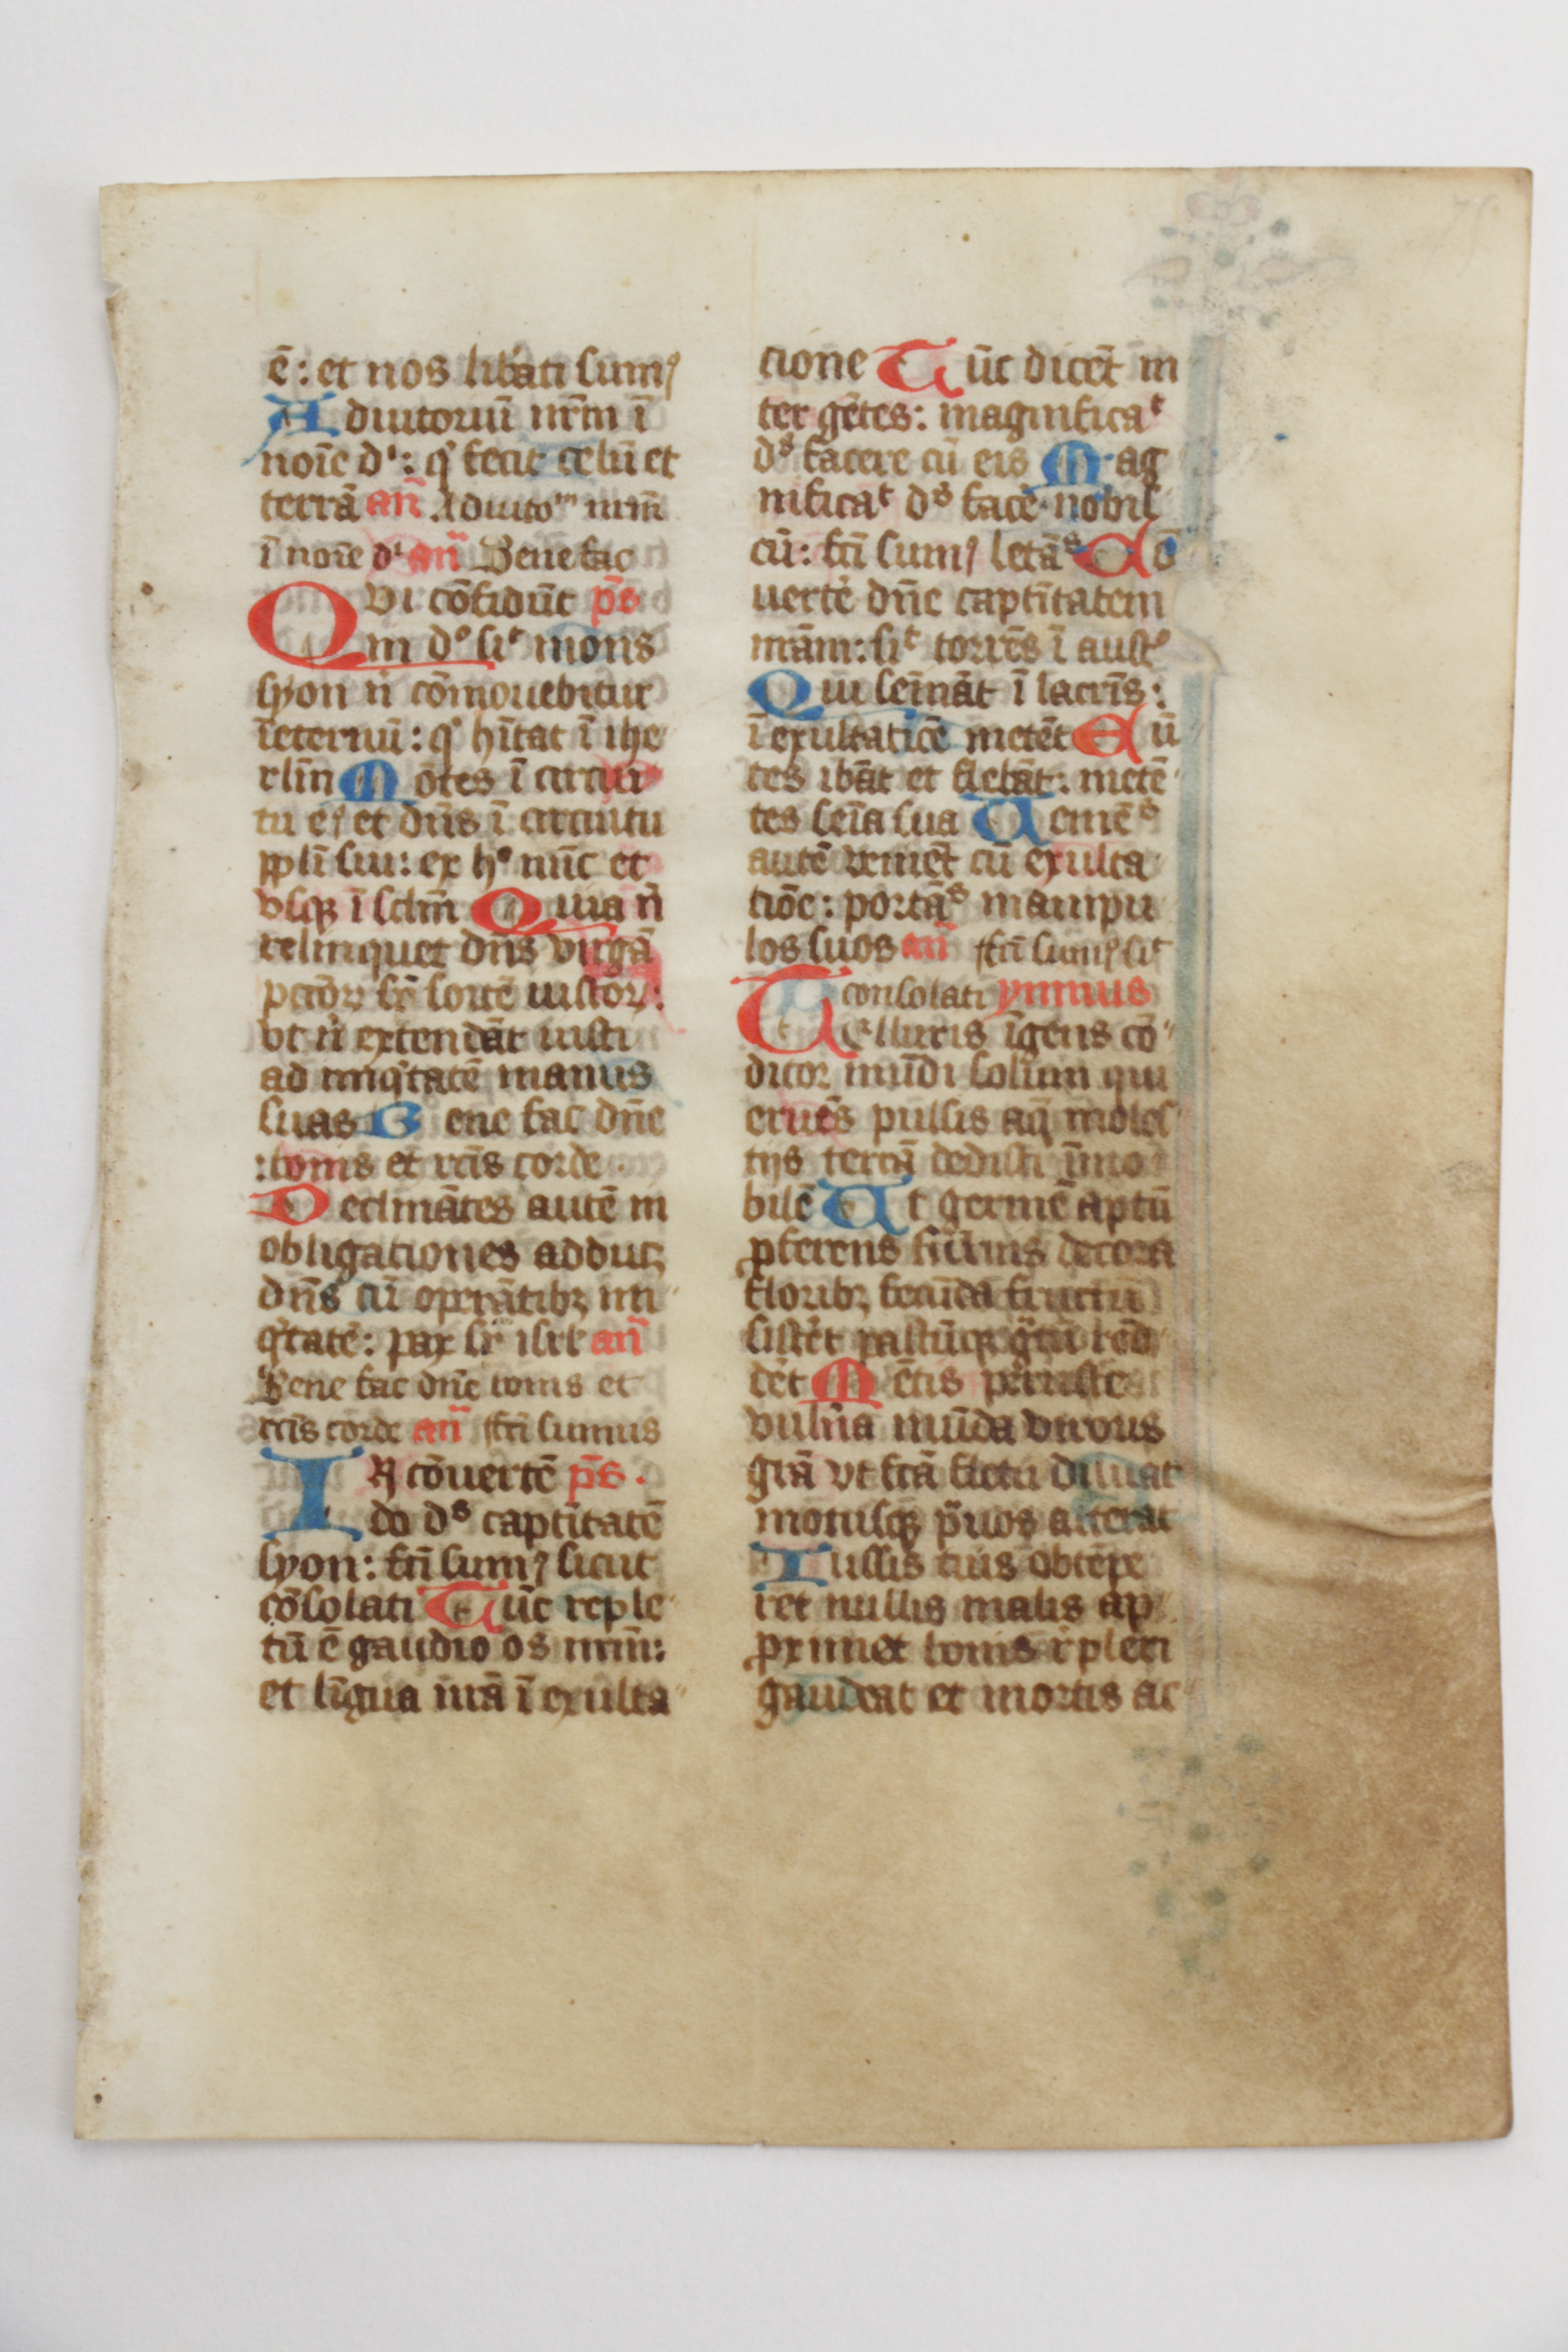 ē: et nos lib̄ati sumꝰ
Adiutoriū nr̄m ī
noīe dⁱ: qⁱ fecit celū et
terrā an̄ Adiutoᵐ nrm̄
ī noīe dⁱ an̄ Bene fac
QVi cōfidūt ps̄
in dº siᶜ mons
syon n̄ cōmouebitur
īeternū: qⁱ hītat ī ihe
rlm̄ Mōtes ī circui
tu eꝰ et dn̄s ī circuitu
ppl̄i sui: ex hº nūc et
vsqꝫ ī sclm̄ Quia n̄
relinquet dn̄s virgā
pctōꝝ sr̄ sortē iustoꝝ:
vt n̄ extendāt iusti
ad iniqⁱtatē manus
suas Bene fac dn̄e
:bonis et rc̄is corde.
Declinātes autē in
obligationes adducꝫ
dn̄s cū operātibꝫ ini
qⁱtatē: pax sr̄ isrl an̄
Bene fac dn̄e bonis et
rc̄is corde an̄ ffc̄i sumus
IN cōuertē ps̄.
do dˢ captīitatē
syon: fc̄i sumꝰ sicut
cōsolati Tūc reple
tū ē gaudio os nrm̄:
et līgua nr̄a ī exulta
cione Tūc dicēt in
ter gētes: magnificaᵗ
dˢ facere cū eis Mag
nificaᵗ dˢ facē nobis
cū: fc̄i sumꝰ letāˢ Cō
uertē dn̄e captīitatem
nrām: siᶜ torrēs ī austº
Qui semīāt ī lacrīs:
ī exultaticē metēt Eū
tes ibāt et flebāt: metē
tes seīa sua Ueniēˢ
autē veniēt cū exulta
tiōe: portāˢ manipu
los suos an̄ ffc̄i sumꝰ sic
consolati ymnus
Telluris īgens cō
ditor mūdi solum qui
eruēs pulsis aq̄ moles
tijs terrā dedisti īmo
bilē Ut germē aptū
ꝓferens fuluis decora
floribꝫ fecūda fructu
sistēt pastūqꝫ gᵃtū red
dēt Mētis peruste
vulīa mūda viroris
grā vt fc̄a fletu diluat
motusqꝫ pᵃuos atterat
Iussis tuis obtēpe
ret nullis malis ap
ꝓximet bonis īpleri
gaudeat et mortis ac
75